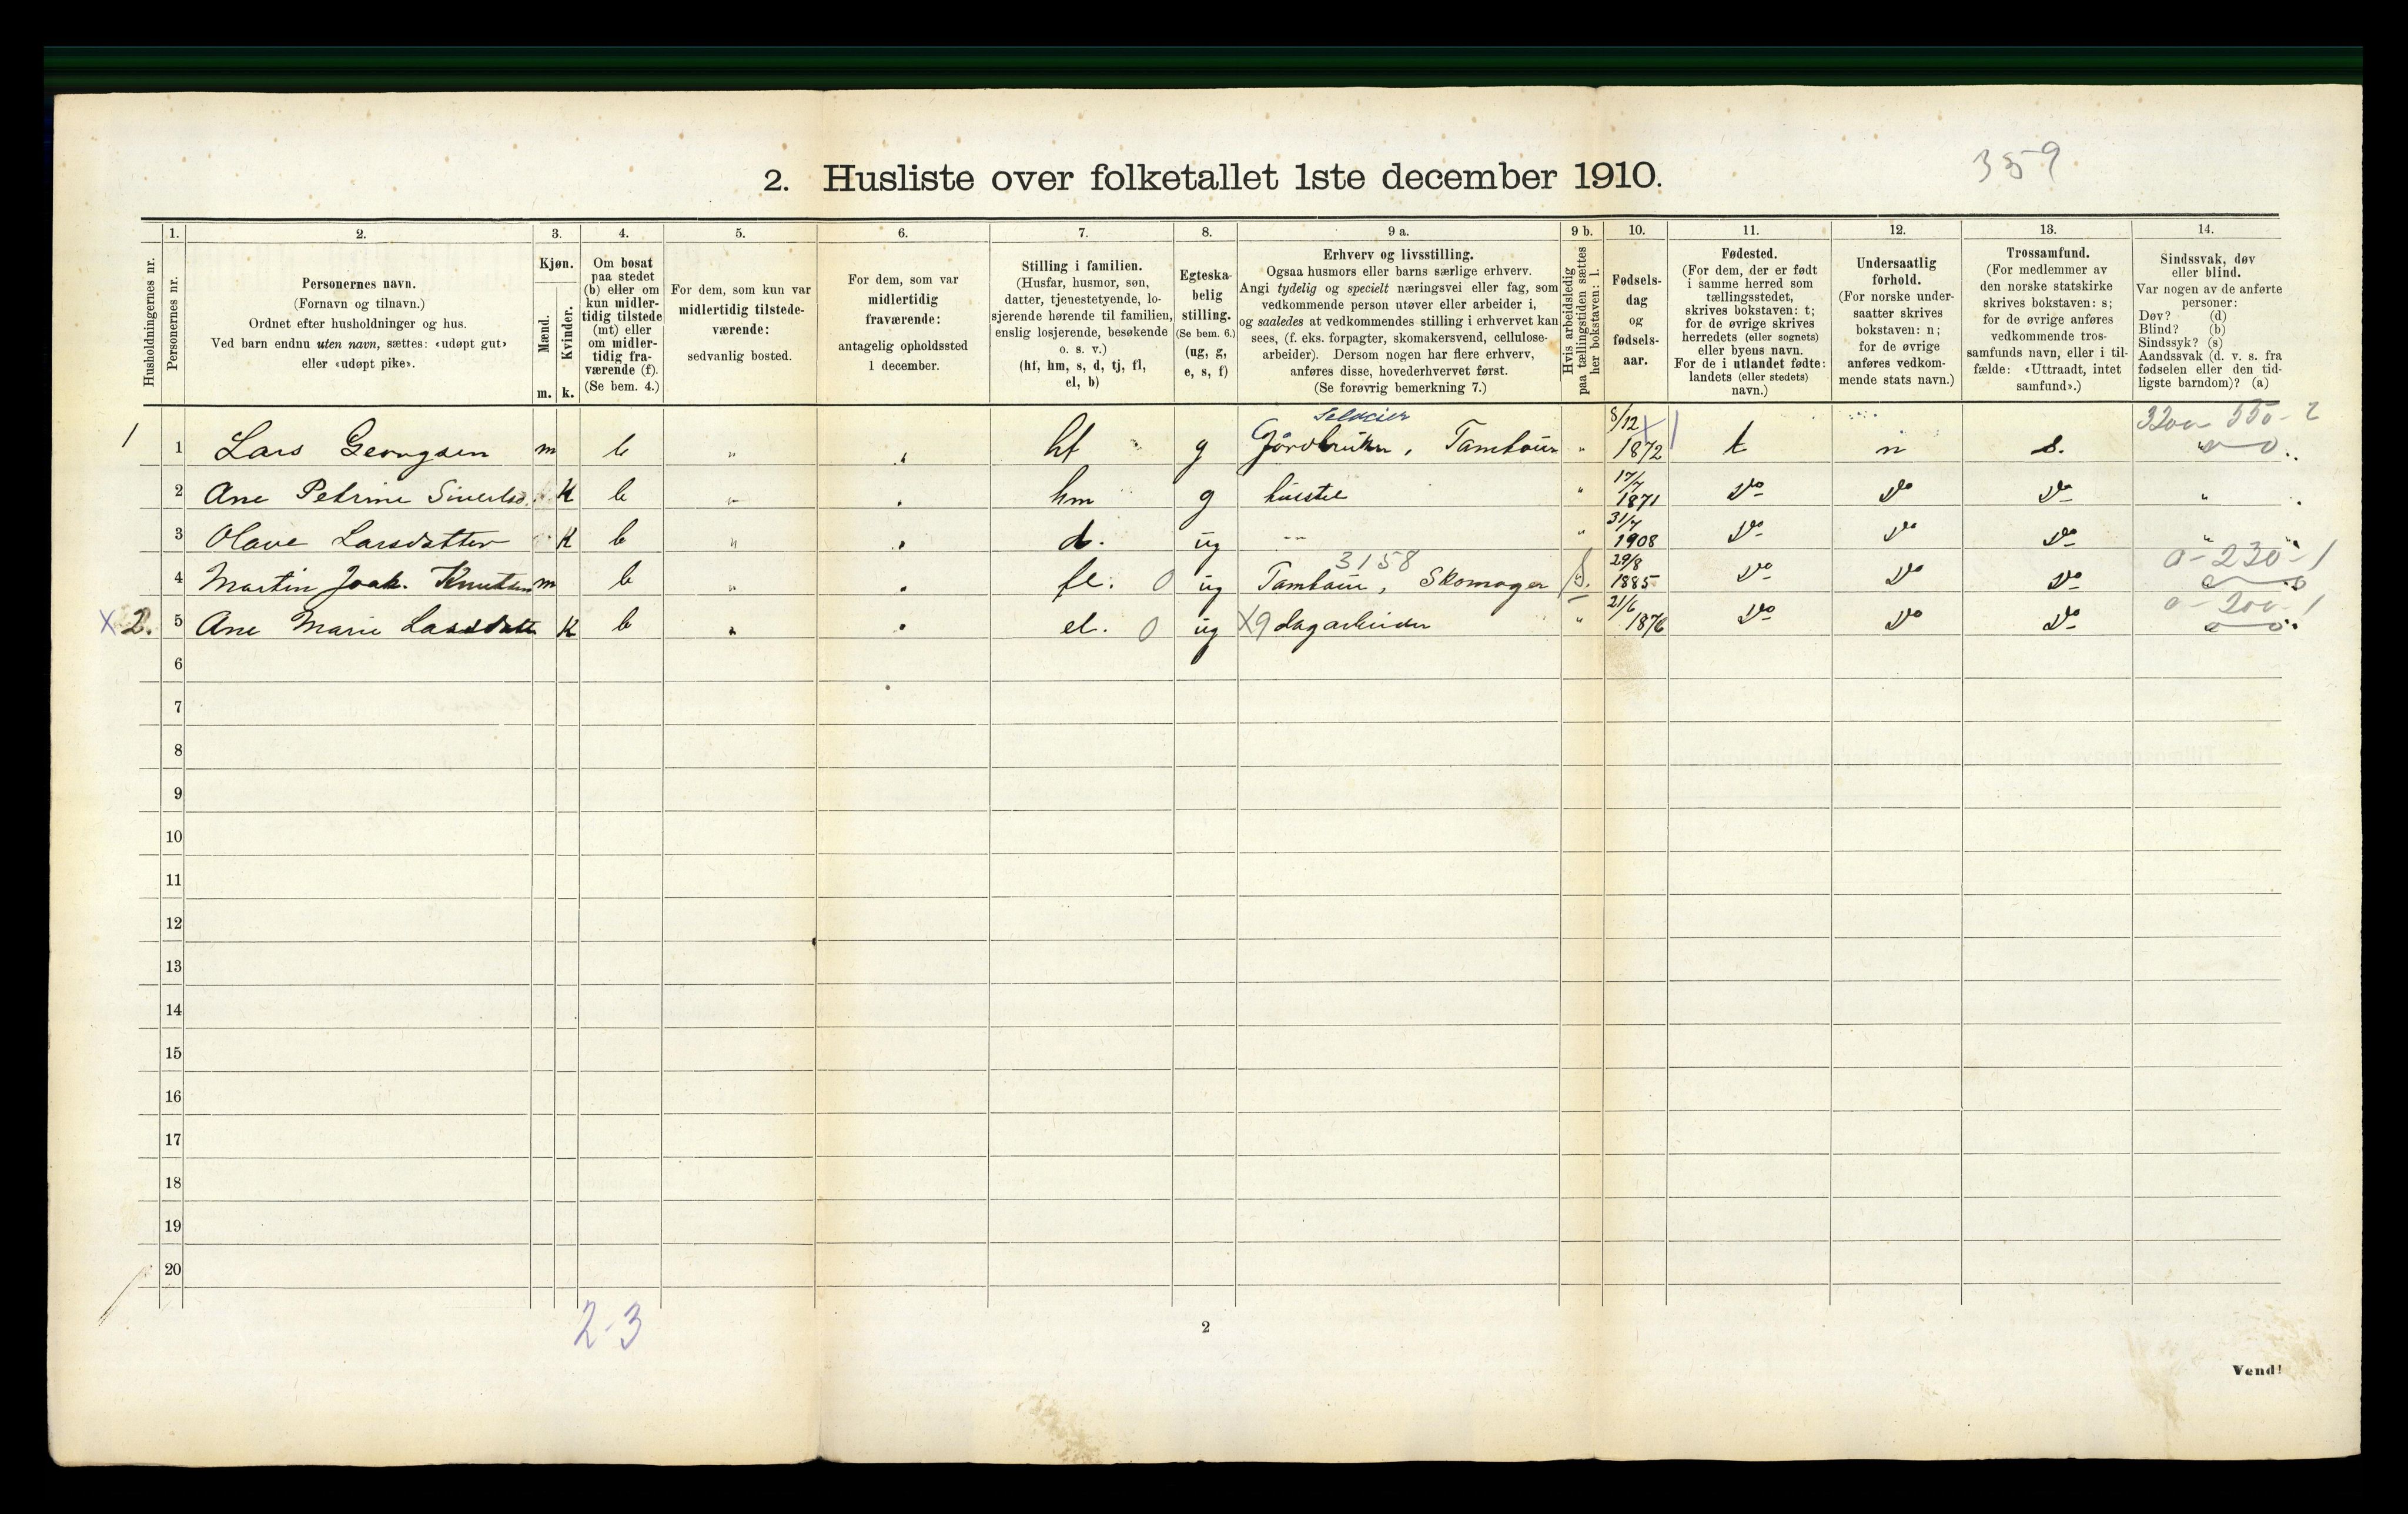 359
2. Husliste over folketallet 1ste december 1910.
Husholdningernes nr.
1. Personernes nr.
2. Personernes navn.
(Fornavn og tilnavn.)
Ordnet efter husholdninger og hus.
Ved barn endnu uten navn, sættes: «udøpt gut»
eller «udøpt pike».
3. Kjøn.
Mænd. m.
Kvinder. k.
4. Om bosat
paa stedet
(b) eller om
kun midler-
tidig tilstede
(mt) eller
om midler-
tidig fra-
værende (f).
(Se bem. 4.)
5. For dem, som kun var
midlertidig tilstede-
værende:
sedvanlig bosted.
6. For dem, som var
midlertidig
fraværende:
antagelig opholdssted
1 december.
7. Stilling i familien.
(Husfar, husmor, søn,
datter, tjenestetyende, lo-
sjerende hørende til familien,
enslig losjerende, besøkende
o. s. v.)
(hf, hm, s, d, tj, fl,
el, b)
8. Egteska-
belig
stilling.
(Se bem. 6.)
(ug, g,
e, s, f)
9 a. Erhverv og livsstilling.
Ogsaa husmors eller barns særlige erhverv.
Angi tydelig og specielt næringsvei eller fag, som
vedkommende person utøver eller arbeider i,
og saaledes at vedkommendes stilling i erhvervet kan
sees, (f. eks. forpagter, skomakersvend, cellulose-
arbeider). Dersom nogen har flere erhverv,
anføres disse, hovederhvervet først.
(Se forøvrig bemerkning 7.)
9 b. Hvis arbeidsledig
paa tællingstiden sættes
her bokstaven: l.
10. Fødsels-
dag
og
fødsels-
aar.
11. Fødested.
(For dem, der er født
i samme herred som
tællingsstedet,
skrives bokstaven: t;
for de øvrige skrives
herredets (eller sognets)
eller byens navn.
For de i utlandet fødte:
landets (eller stedets)
navn.)
12. Undersaatlig
forhold.
(For norske under-
saatter skrives
bokstaven: n;
for de øvrige
anføres vedkom-
mende stats navn.)
13. Trossamfund.
(For medlemmer av
den norske statskirke
skrives bokstaven: s;
for de øvrige anføres
vedkommende tros-
samfunds navn, eller i til-
fælde: «Uttraadt, intet
samfund».)
14. Sindssvak, døv
eller blind.
Var nogen av de anførte
personer:
Døv? (d)
Blind? (b)
Sindssyk? (s)
Aandssvak (d. v. s. fra
fødselen eller den tid-
ligste barndom)? (a)
1 1 Lars Georgsen m b " hf g Selveier Jordbruker, " 8/12 1872 t n s. 3200 550-2
2 Ane Petrine Sivertsd. K b " hm g husstel " 17/7 1871 do do do "
3 Olave Larsdatter K b " d. ug -- " 31/7 1908 do do do "
4 Martin Joak. Knutsen m b " fl. 0 ug 3158 Skomager 29/8 1885 do do do 0-230-1
X 2. 5 Ane Marie Larsdatt K b " el. 0 ug X9 dagarbeider " 21/6 1876 do do do 0-200-1
6
7
8
9
10
11
12
13
14
15
16
17
18
19
20
2-3
2
Vend!